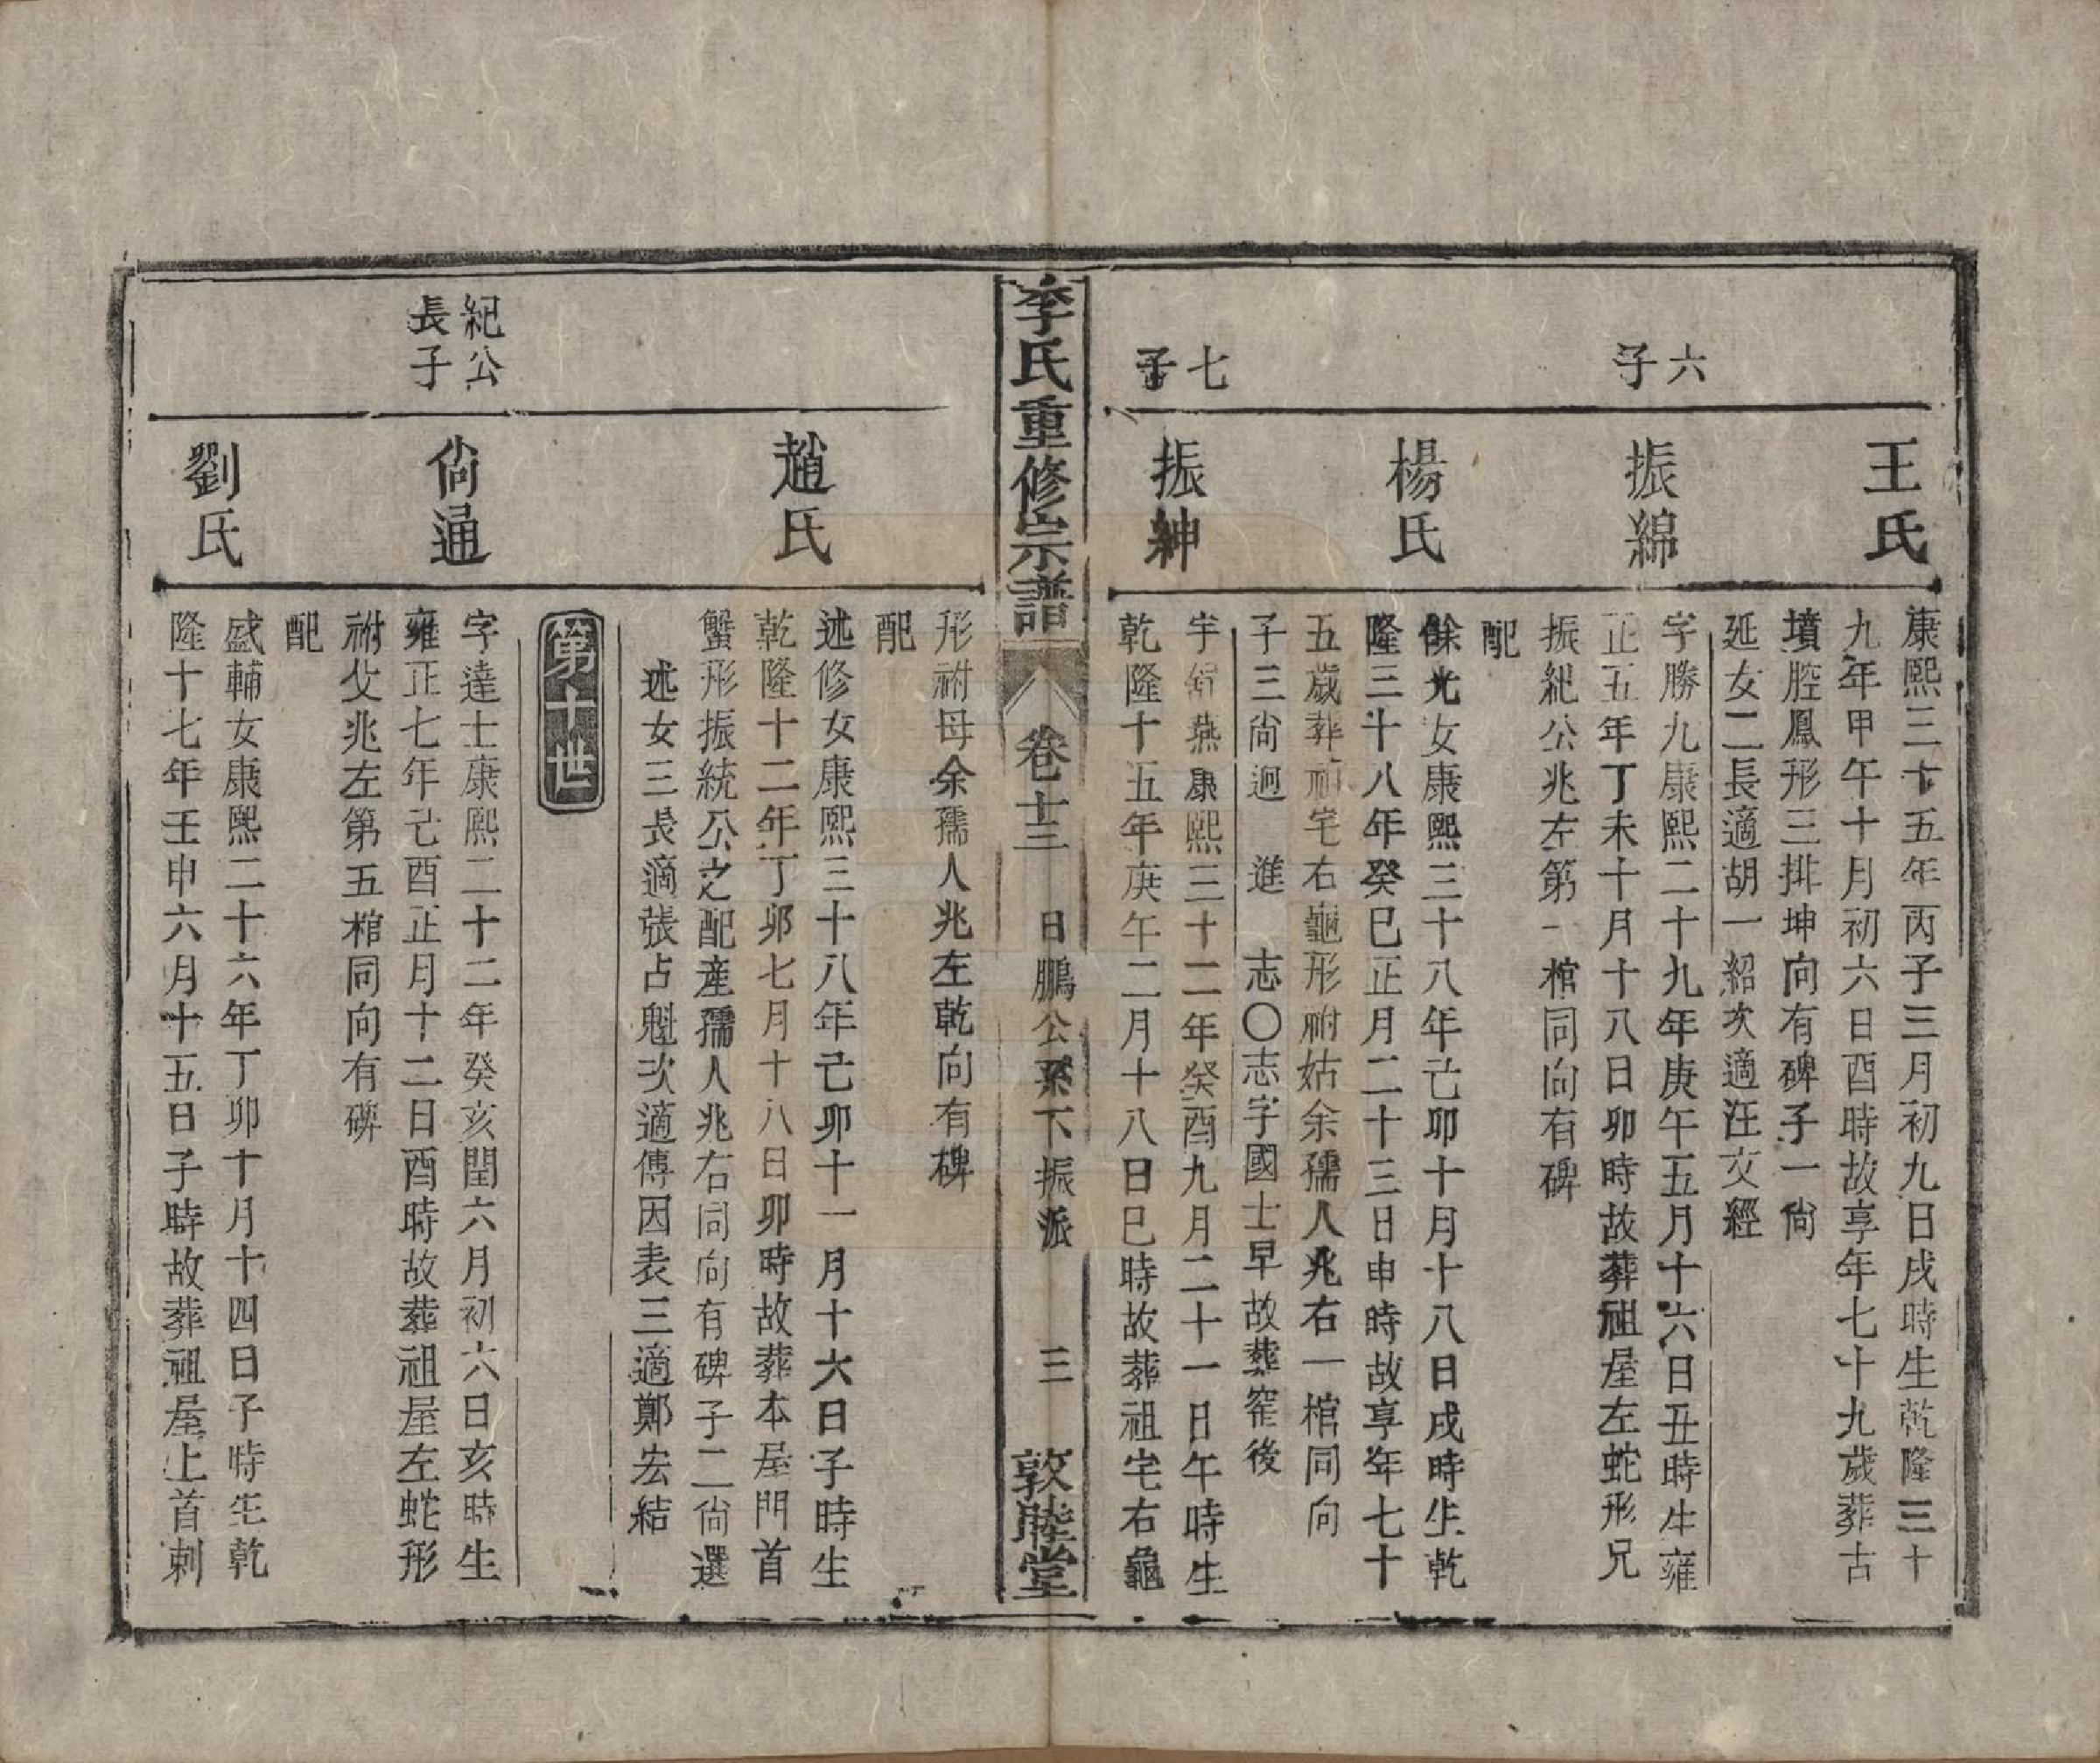 王氏
康熙三十五年丙子三月初九日戌時生乾隆三十
九年甲午十月初六日酉時故享年七十九歲葬古
墳腔鳳形三排坤向有碑子一尙
延女二長適胡一紹次適汪文經
六
子
振綿
字勝九康熙二十九年庚午五月十六日丑時生雍
正五年丁未十月十八日卯時故葬祖屋左蛇形兄
振紀公兆左第一棺同向有碑
配
楊氏
餘光女康熙三十八年己卯十月十八日戌時生乾
隆三十八年癸巳正月二十三日申時故享年七十
五歲葬祖宅右龜形祔姑余孺人兆右一棺同向
子三尙迥 進 志〇志字國士早故葬窑後
七
子
振紳
字縉燕康熙三十二年癸酉九月二十一日午時生
乾隆十五年庚午二月十八日巳時故葬祖宅右龜
李氏重修宗譜 卷十三 日鵬公系下振派 三 敦睦堂
形祔母余孺人兆左乾向有碑
配
趙氏
述修女康熙三十八年己卯十一月十六日子時生
乾隆十二年丁卯七月十八日卯時故葬本屋門首
蟹形振統公之配産孺人兆右同向有碑子二尙選
述女三長適張占魁次適傅因表三適鄭宏結
第十世
紀公
長子
尙通
字達士康熙二十二年癸亥閏六月初六日亥時生
雍正七年己酉正月十二日酉時故葬祖屋左蛇形
祔父兆左第五棺同向有碑
配
劉氏
盛輔女康熙二十六年丁卯十月十四日子時生乾
隆十七年壬申六月十五日子時故葬祖屋上首刺